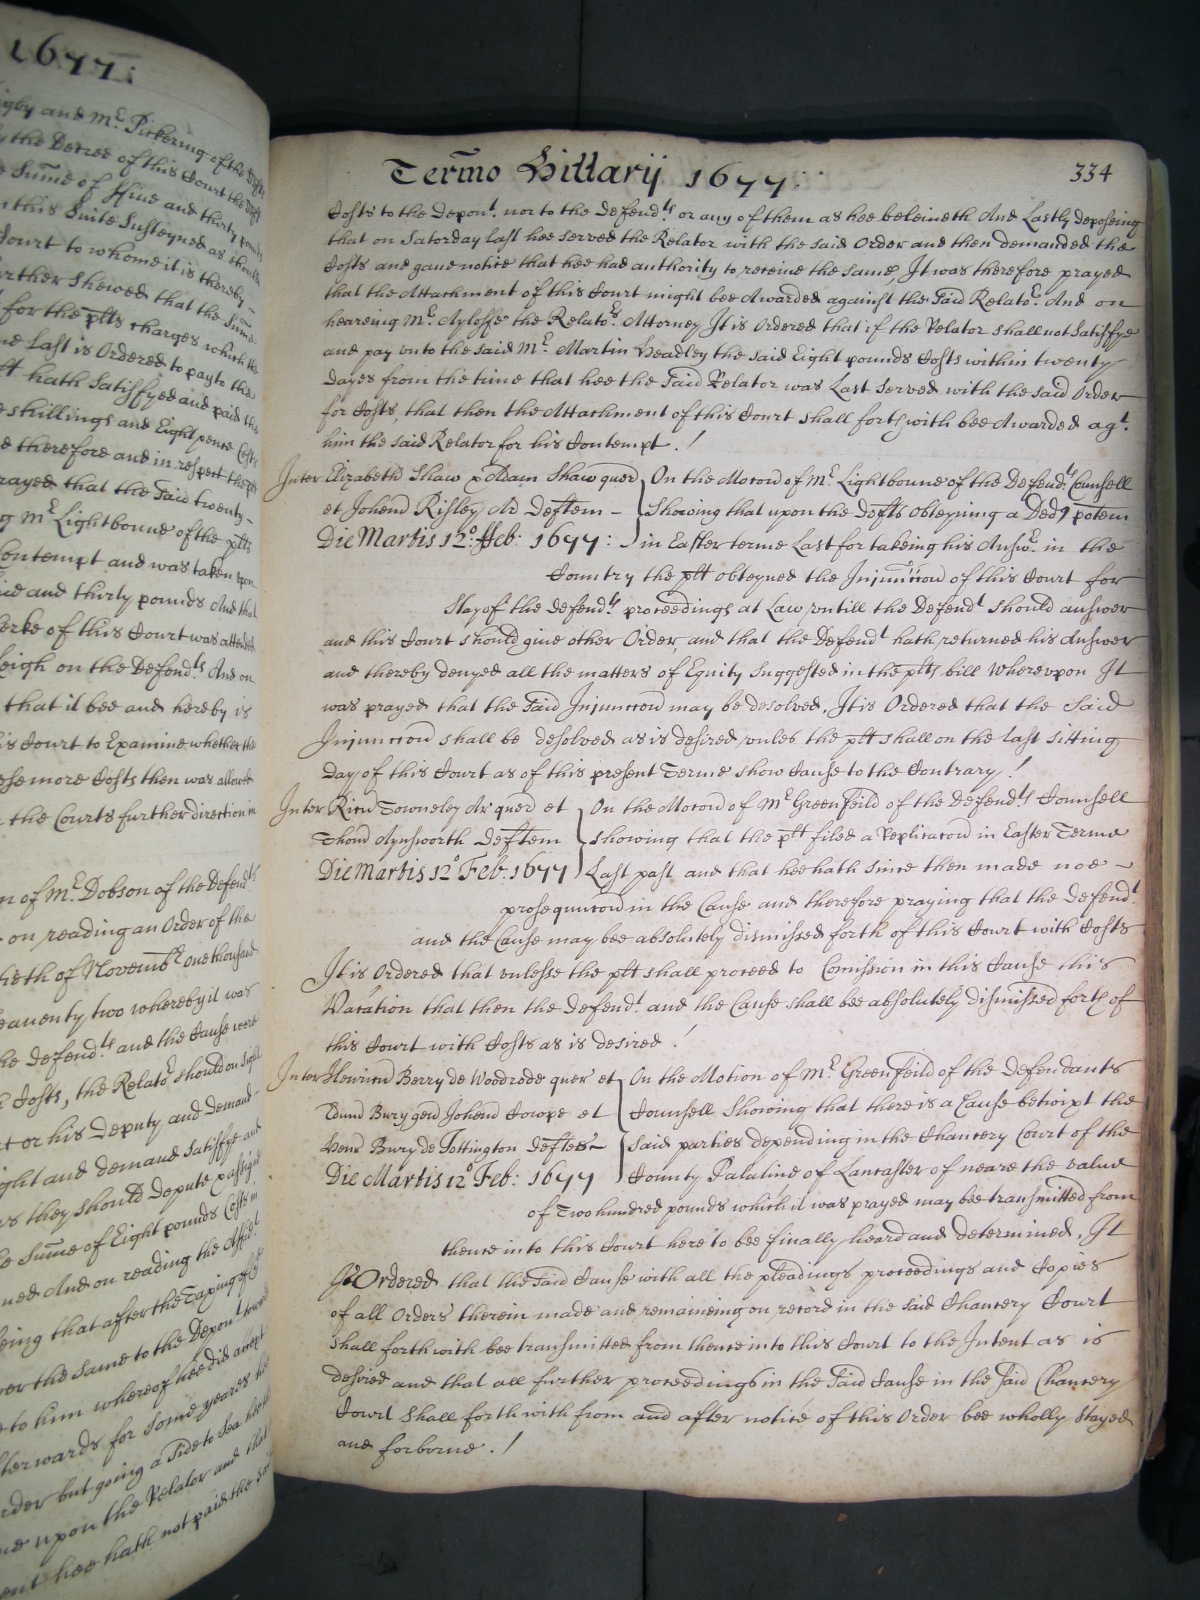 1677:
igby and Mr. Pickering of the Defts
y the Decree of this Court the Deft
e Sum̄e of ffive and thirty pounds
n this Suite Susteyned as should
Court to whome it is thereby
urther shewed that the Sum̄e
for the plts charges which the
me Last is Ordered to pay to the
lt hath Satisfyed and paid the
e shillings and Eight pence Costs
e therefore and in respect the plt
rayed that the said twenty-
g Mr Lightboune of the plts
Contempt and was taken upon
ive and thirty pounds And that
lerke of this Court was attended
leigh on the Defend:ts And on
that it bee and hereby is
is Court to Examine whether the
ose more Costs then was allowed
the Courts further direction in
n of Mr Dobson of the Defend:ts
on reading an Order of the
ieth of Novemb:r one thousand
eaventy two whereby it was
he defend:ts and the Cause were
Costs, the Relato:r should on sight
t or his Deputy and demand
ight and demand Satisfye and
as they should depute
e Sum̄e of Eight pounds Costs in
ned And on reading the Affid:t
eing that after the Taxing of
ver the same to the Depon:t
e to him whereof hee did accept
fterwards for some yeares
rder but going a Side to Sea
me upon the Relator and that
ent hee hath not paid the
Term̄o Hillarij 1677: 334
Costs to the Depon:t nor to the defend:ts or any of them as hee beleiveth And Lastly deposeing
that on Satorday last hee served the Relator with the said Order and then demanded the
Costs and gave notice that hee had authority to receive the same, It was therefore prayed
that the Attachment of this Court might bee Awarded against the Said Relato:r And on
heareing Mr. Ayloffe the Relato:rs Attorney It is Ordered that if the Relator shall not Satisfye
and pay unto the said Mr. Martin Headley the said Eight pounds Costs within twenty
dayes from the time that hee the Said Relator was Last Served with the said Order
for Costs, that then the Attachment of this Court shall forthwith bee Awarded ag:t
him the said Relator for his Contempt . /
Inter Elizabeth Shaw x Adam Shaw quer̄ On the Mocōn of Mr. Lightboune of the Defend:ts Counsell
et Johen̄ Risley Ar̄ deftem — Showing that upon the defts obteyning a Ded potem
Die Martis 12o: ffeb: 1677: in Easter terme Last for takeing his Answ:r in the
Country the plt obteyned the Injunccōn of this Court for
Stay of the defend:ts proceedings at Law, untill the Defend:t should answer
and this Court should give other Order, and that the Defend:t hath returned his Answer
and thereby denyed all the matters of Equity Suggested in the plts bill Whereupon It
was prayed that the Said Injunccōn may be desolved, It is Ordered that the said
Injunccōn shall be desolved as is desired unles the plt shall on the last sitting
day of this Court as of this present Terme show Cause to the Contrary /
Inter Ricū Towneley Ar̄ quer̄ et On the Mocōn of Mr Greenfeild of the Defend:ts Counsell
Thom̄ Aynsworth Deftem showing that the plt filed a Replicacōn in Easter Terme
Die Martis 12o Feb: 1677 Last past and that hee hath since then made noe —
prosequucōn in the Cause and therefore praying that the Defend:t
and the Cause may bee absolutely dismissed forth of this Court with Costs
It is Ordered that unlesse the plt shall proceed to Com̄ission in this Cause this
Vacation that then the Defend:t and the Cause shall bee absolutely dismissed forth of
this Court with Costs as is desired . /
Inter Henricū Berry de Woodrode quer̄ et On the Motion of Mr. Greenfeild of the defendants
Edm̄d Bury gen̄ Johem̄ Cowpe et Counsell Showing that there is a Cause betwixt the
Henr̄ Bury de Tottington deftes — Said parties depending in the Chancery Court of the
Die Martis 12o Feb: 1677 County Palatine of Lancaster of neare the value
of Two hundred pounds which it was prayed may bee transmitted from
thence into this Court here to bee finally heard and determined, It
Is Ordered that the said Cause with all the pleadings proceedings and Copies
of all Orders therein made and remaineing on record in the said Chancery Court
Shall forthwith bee transmitted from thence into this Court to the Intent as is
desired and that all further proceedings in the Said Cause in the Said Chancery
Court Shall forthwith from and after notice of this Order bee wholly Stayed
and forborne . /